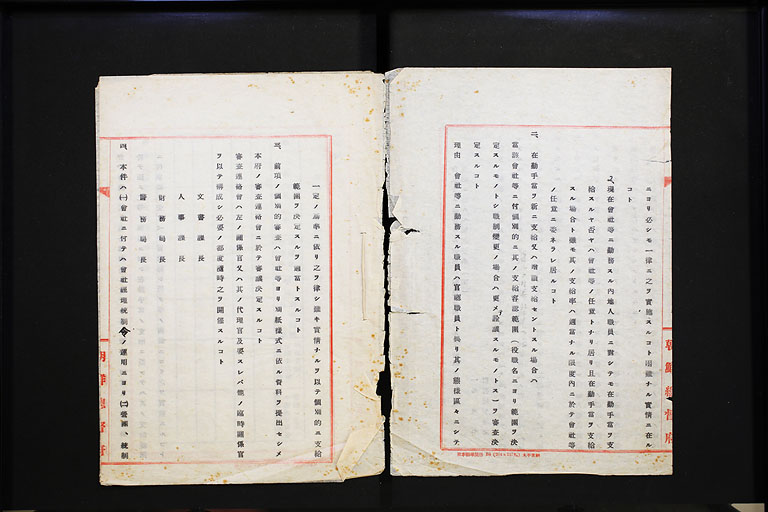 ニヨリ必シモ一律ニ之ヲ實施スルコト困難ナル實情ニ在ル
コト
2、現在會社等ニ勤務スル內地人職員ニ對シテモ在勤手當ヲ支
給スルヤ否ヤハ會社等ノ任意トナリ居リ且在勤手當ヲ支給
スル場合ト雖モ其ノ支給率ハ適當ナル限度內ニ於テ會社等
ノ任意ニ委ネラレ居ルコト
二、在勤手當ヲ新ニ支給又ハ增額支給セントスル場合ハ
當該會社等ニ付個別的ニ其ノ支給容認範圍(役職名ニヨリ範圍ヲ決
定スルモノトシ職制變更ノ場合ハ更メ詮議スルモノトス)ヲ審査決
定スルコト
理由 會社等ニ勤務スル職員ハ官廳職員ト異リ其ノ態樣區々ニシテ
朝鮮總督府
一定ノ基準ニ依リ之ヲ律シ難キ實情ナルヲ以テ個別的ニ支給
範圍ヲ決定スルヲ適當トスルコト
三、前項ノ個別的審査ハ會社等ヨリ別紙樣式ニ依ル資料ヲ提出セシメ
本府ノ審査連絡會ニ於テ審議決定スルコト
審査連絡會ハ左ノ關係官又ハ其ノ代理官及要スレバ他ノ臨時關係官
ヲ以テ構成シ必要ノ都度隨時之ヲ開催スルコト
文書課長
人事課長
財務局長
務局長
四、本件ハ(一)會社ニ付テハ會社經理統制令ノ運用ニヨリ(二)營團、統制
朝鮮總督府